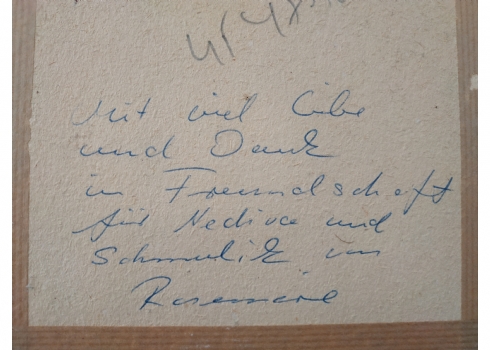 Mit viel Liebe
und Dank
in Freundschaft
für Nediva und
Schmulik von
Rosemarie